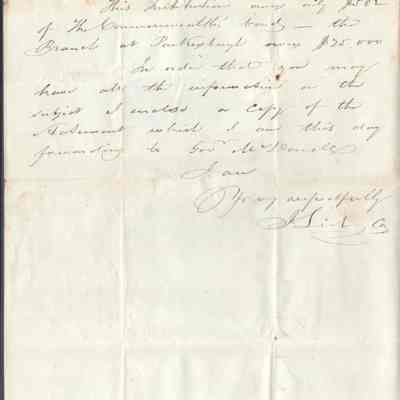 This Institution owns only $502
of The Commonwealths bonds — the
Branch at Parkersburgh owns $75.000
In order that you may
have all the information on the
subject I enclose a Copy of the
Statement which I am this day
forwarding to Govr McDonald
I am
Yr very respectfully